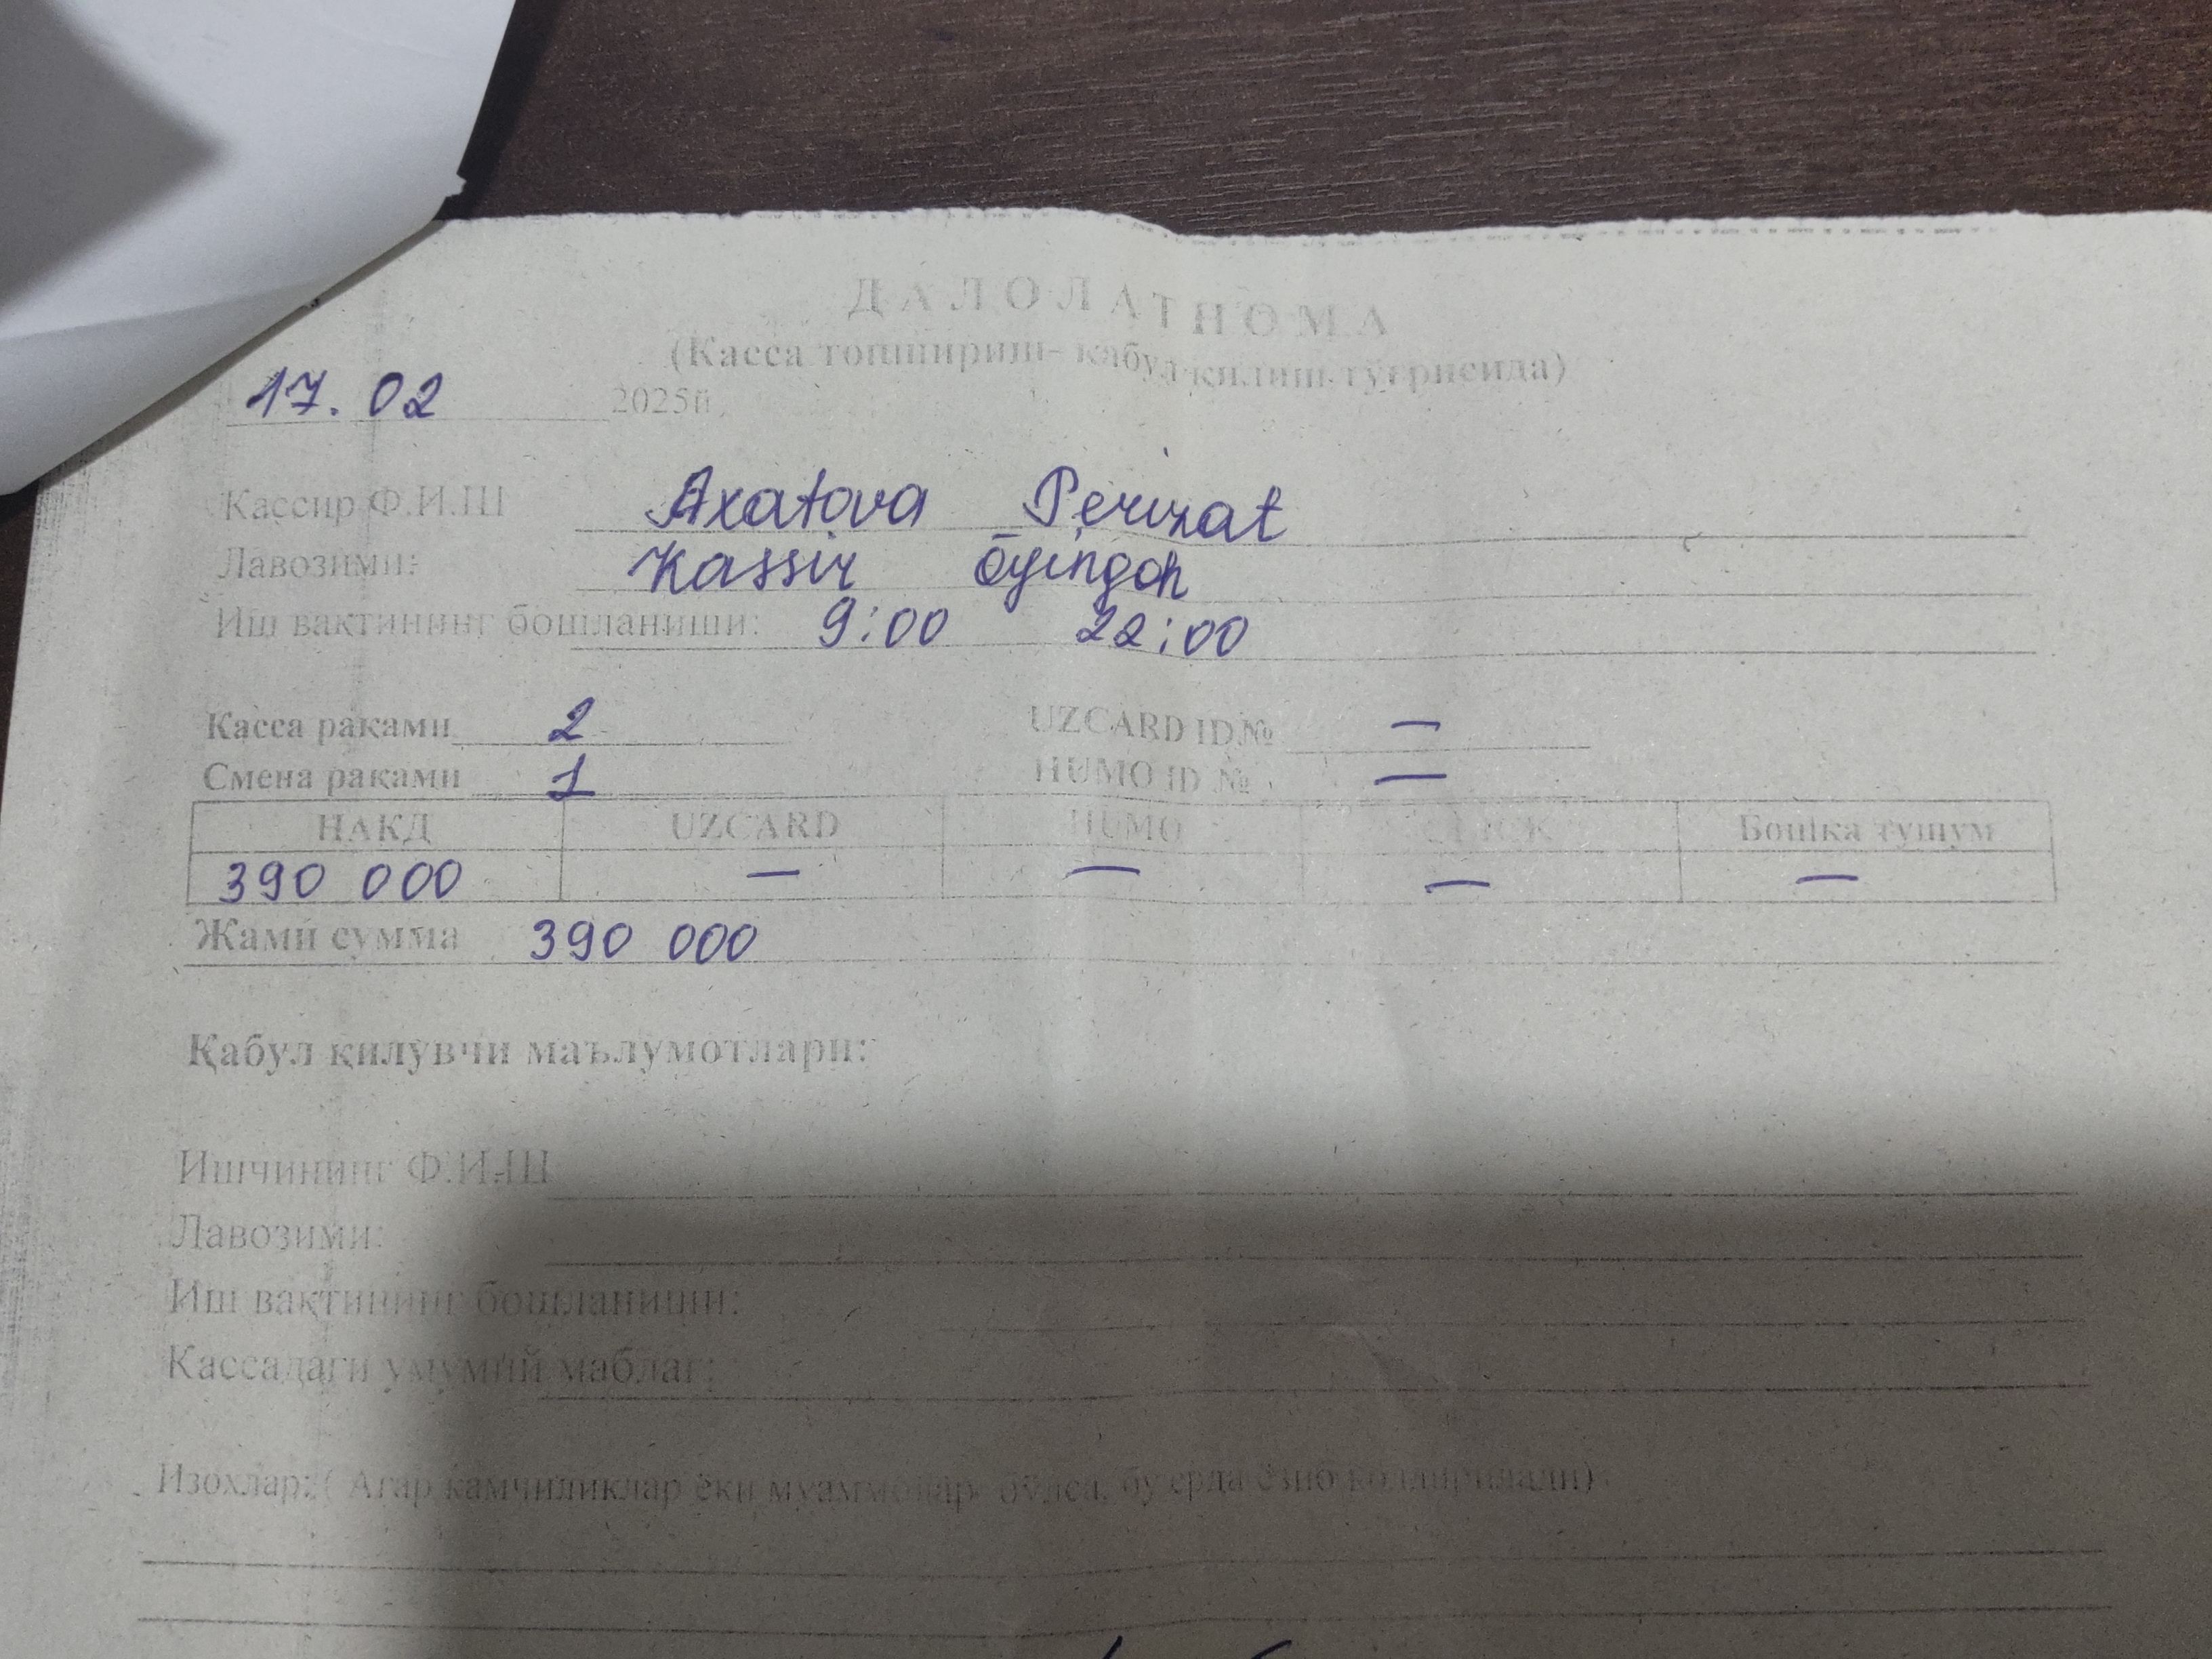 ДАЛОЛАТНОМА
(Касса топшириш- қабул қилиш тўғрисида)
17.02 2025й.
Кассир Ф.И.Ш Axatova Perizat
Лавозими: Kassir ōyingoh
Иш вақтининг бошланиши: 9:00 22:00
Касса рақами 2 UZCARD ID№ —
Смена рақами 1 HUMO ID № —
НАҚД UZCARD HUMO CLICK Бошқа тушум
390 000 — — — —
Жами сумма 390 000
Қабул қилувчи маълумотлари:
Ишчининг Ф.И.Ш
Лавозими:
Иш вақтининг бошланиши:
Кассадаги умумий маблағ:
Изохлар: ( Агар камчиликлар ёки муаммолар бўлса, бу ерда ёзиб қолдирилади)